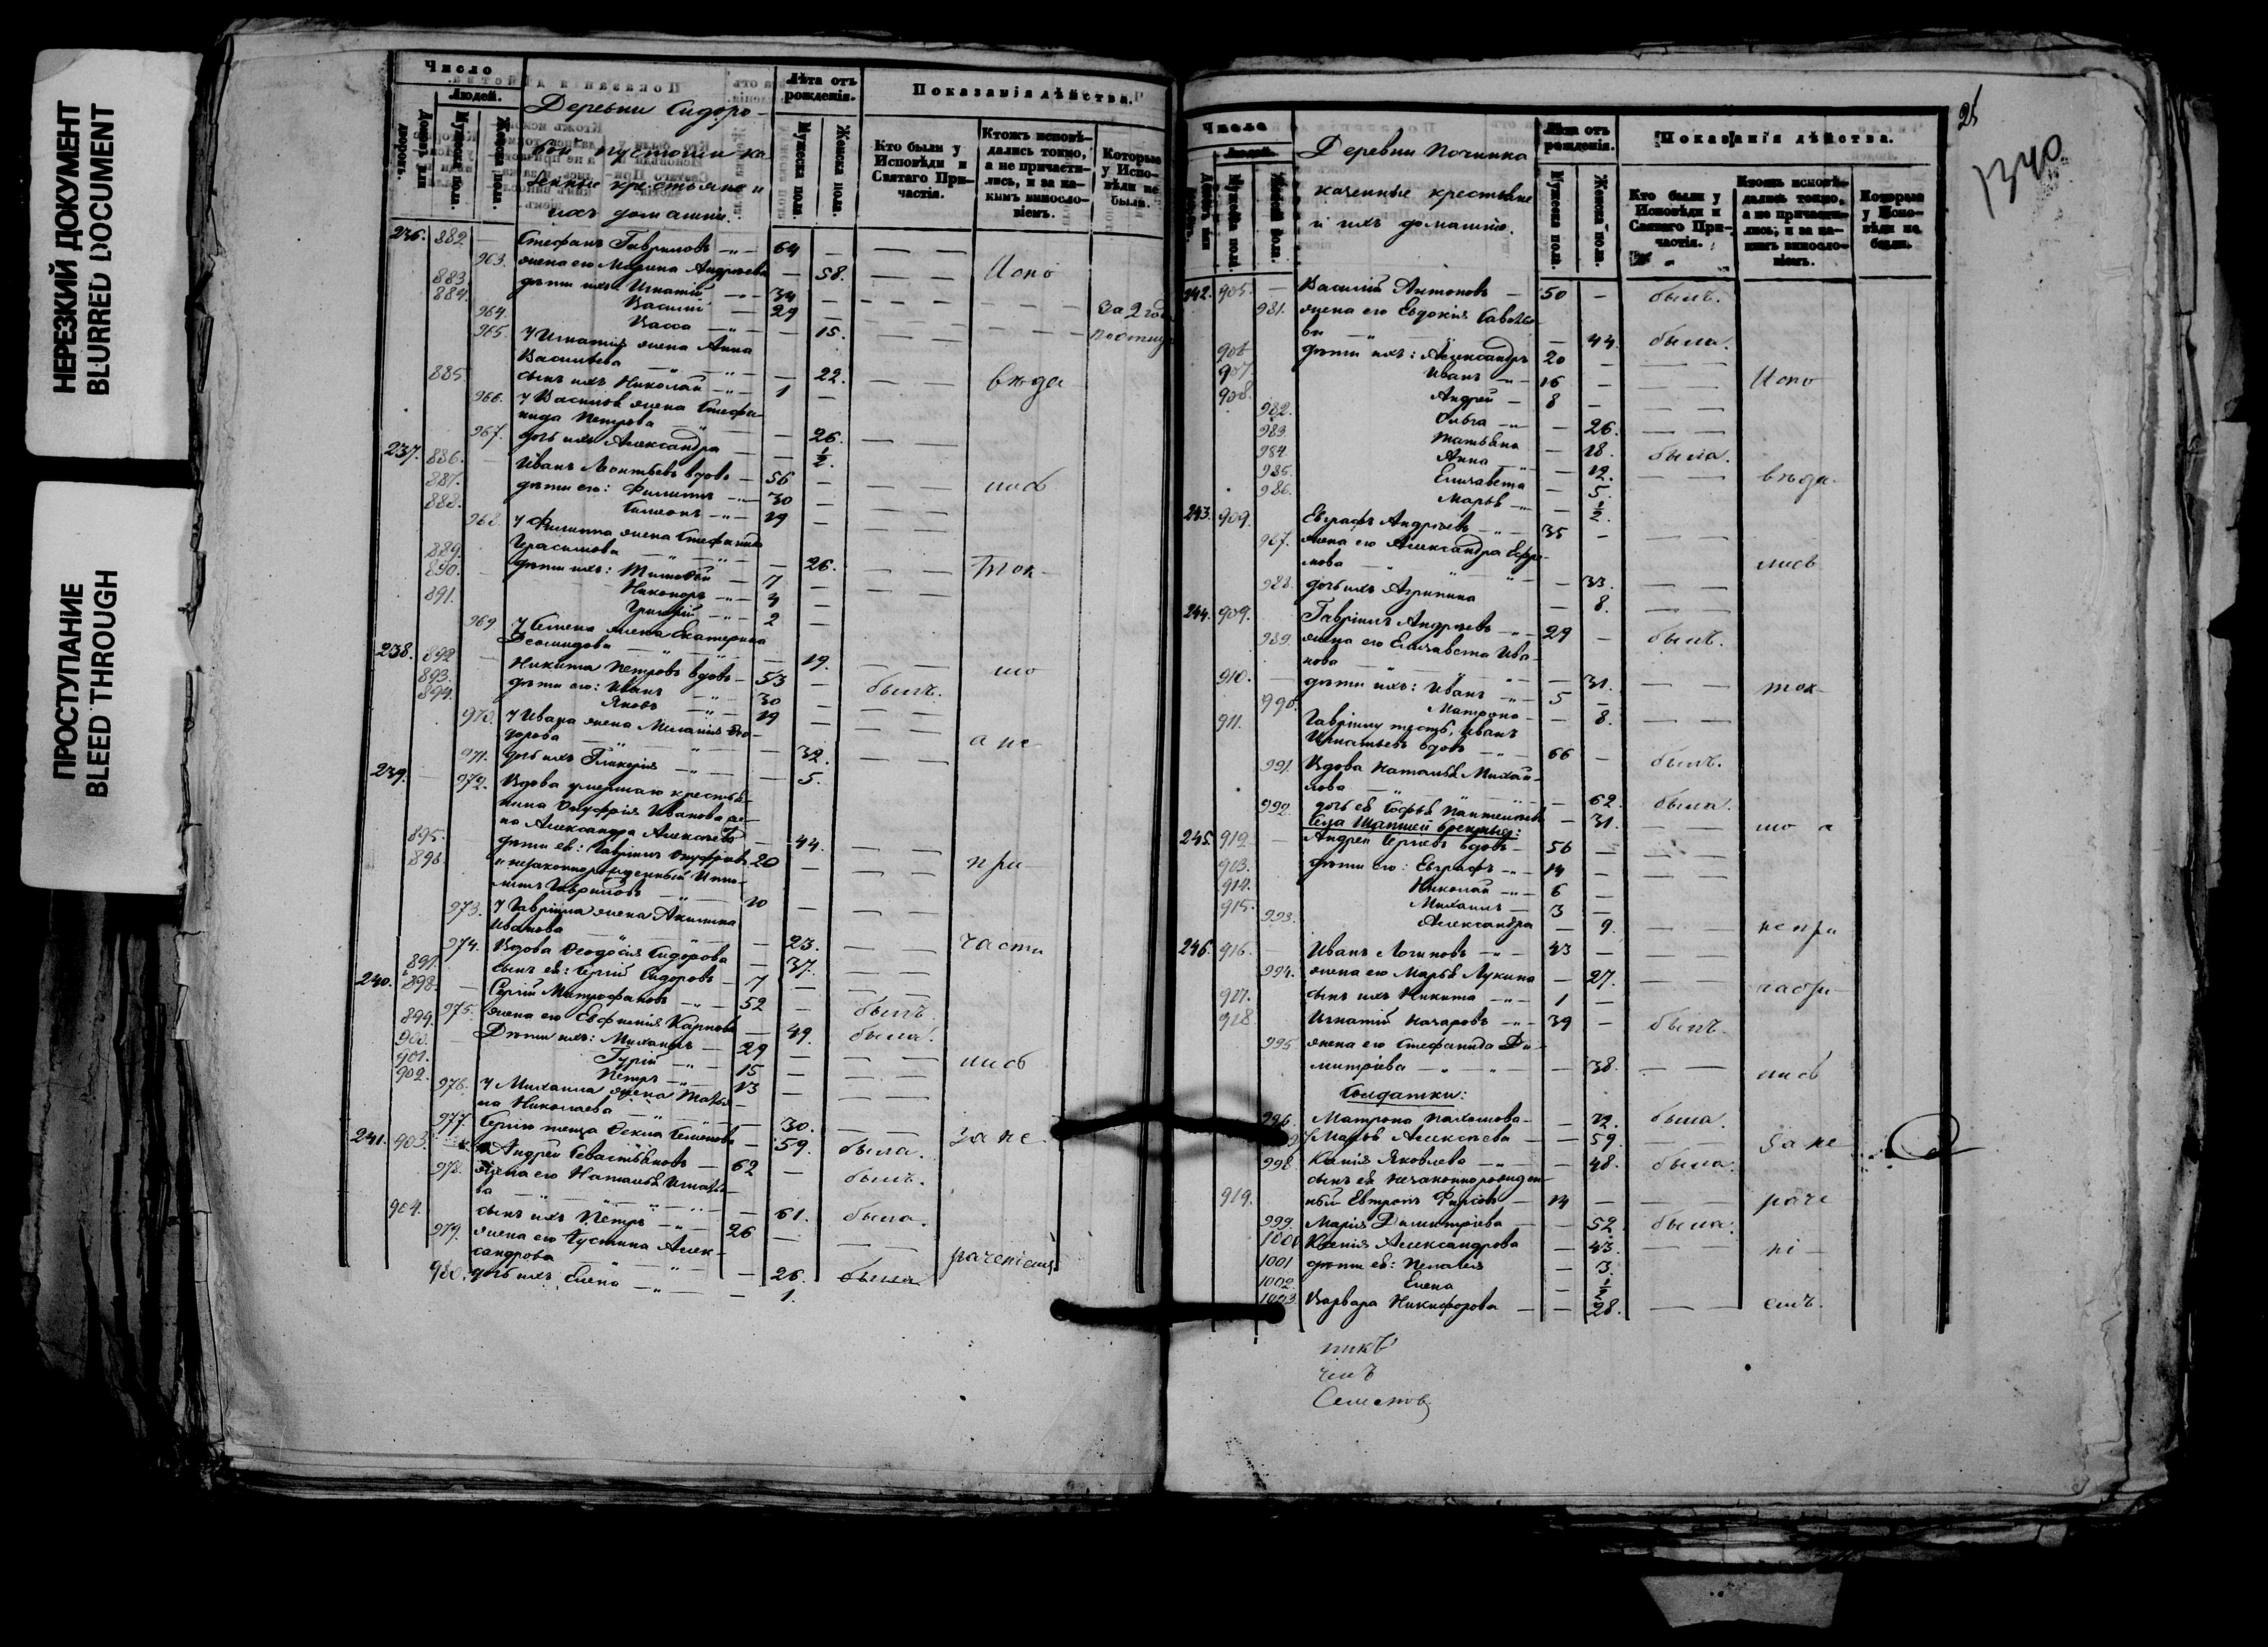 НЕРЕЗКИЙ ДОКУМЕНТ
BLURRED DOCUMENT
ПРОСТУПАНИЕ
BLEED THROUGH
Число
Людей.
Домовъ или дворовъ.
Мужеска полу.
Женска полу.
Деревни Сидоро-
вой пустоши ка
зенные крестьяне и
ихъ домашніе.
Лѣта отъ рожденія.
Мужеска пола.
Женска пола.
Показанія дѣйства.
Кто были у Исповѣди и Святаго Причастія.
Ктожъ исповѣдались токмо, а не причастились, и за какимъ винословіемъ.
Которые у Исповѣди не были.
236. 882. — Стефанъ Гавриловъ 64 —
963. жена его Марина Андреева — 58. Испо
883. дѣти ихъ: Игнатій 34 —
884. Василій 29 — за 2 год
964. Васса — 15.
965. У Игнатія жена Анна
Васильева — 22.
885. сынъ ихъ Николай 1 — вѣда
966. У Василія жена Стефа-
нида Петрова — 26.
967. дочь ихъ Александра — ½.
237. 886. — Иванъ Леонтьевъ вдовъ 56 —
887. дѣти его: Филиппъ 30 — лись
888. Симеонъ 19 —
968. У Филиппа жена Стефанида
Герасимова — 26.
889. дѣти ихъ: Тимофей 7 — ток-
890. Никаноръ 4 —
891. Григорій 2 —
969 У Семена жена Екатерина
— 19.
238. 892 — Никита Петровъ вдовъ 53 — мо
893. дѣти его: Иванъ 30 — былъ.
894. Яковъ 19 —
970. У Ивана жена Меланія Ѳео-
дорова — 32. а не
971. дочь ихъ Гликерія — 5.
239. — 972. Вдова умершаго крестья-
нина Онуфрія Иванова же-
на Александра Алексеева — 44.
895. дѣти ея: Гавріилъ Онуфріевъ 20 — при
896. незаконнорожденный
Гавриловъ 10 —
973. У Гавріила жена Акилина
Иванова — 23. части
974. Вдова Ѳеодосія Сидорова — 37.
897. сынъ ея: Сергій Сидоровъ 7 —
240. 898. — Сергій Митрофановъ 52 — былъ.
975. жена его Евфимія Карпова — 49. была.
899. Дѣти ихъ: Михаилъ 29 —
900. Гурій 15 — лись
901. Петръ 13 —
902.
976. У Михаила жена Татья-
на Николаева — 30.
977. Сергію теща Ѳекла Семенова — 59. была. за не-
241. 903. Андрей Севастьяновъ 62 — былъ.
978. жена его Наталья Игнатье-
ва — 61. была.
904. сынъ ихъ Петръ 26 —
979. жена его Іустина Алек-
сандрова — 26. была раченіемъ
980. дочь ихъ Елена — 1.
25
1340
Число
Людей.
Домовъ или дворовъ.
Мужеска полу.
Женска полу.
Деревни Починка
казенные крестьяне
и ихъ домашніе.
Лѣта отъ рожденія.
Мужеска пола.
Женска пола.
Показанія дѣйства.
Кто были у Исповѣди и Святаго Причастія.
Ктожъ исповѣдались токмо, а не причастились, и за какимъ винословіемъ.
Которые у Исповѣди не были.
242. 905. — Василій Антоновъ 50 — былъ.
981. жена его Евдокія Савелье-
ва — 44. была.
906 дѣти ихъ: Александръ 20 —
907. Иванъ 16 — Испо
908. Андрей 8 —
982. Ольга — 26.
983. Татьяна — 18. была.
984 Анна — 12. вѣда-
985. Елизавета — 5.
986. Марья — ½.
243. 909. Евграфъ Андреевъ 35 —
987. жена его Александра Ефре-
мова — 33. лись
988. дочь ихъ Агрипина — 8.
244. 909. Гавріилъ Андреевъ 29 — былъ.
989. жена его Елизавета Ива-
нова — 31. ток-
910. дѣти ихъ: Иванъ 5 —
990. Матрона — 8.
911. Гавріилу тесть, Иванъ
Игнатьевъ вдовъ 66 — былъ.
991. Вдова Наталья Михай-
лова — 62. была.
992. дочь ея Софья — 31. мо а
Села
245. 912 — Андрей Сергеевъ вдовъ 56 —
913. дѣти его: Евграфъ 14 —
914. Николай 6 —
915. Михаилъ 3 —
993. Александра — 9. не при
246. 916. — Иванъ Логиновъ 43 —
994. жена его Марья Лукина — 27.
917. сынъ ихъ Никита 1 —
918 Игнатій Назаровъ 39 — былъ.
995 жена его Стефанида Ди-
митріева — 38. лись
Солдатки:
996. Матрона Пахомова — 72. была.
997 Марья Алексеева — 59. за не
998 Ксенія Яковлева — 48. была.
сынъ ея незаконнорожден-
919. ный 14 — раче
999. Марія Димитріева — 52. была
1000 Ксенія Александрова — 43. ні-
1001 дѣти ея: Пелагея — 3.
1002. Елена — ½
1003. Варвара Никифорова — 28. емъ.
никъ
чилъ
Семенов